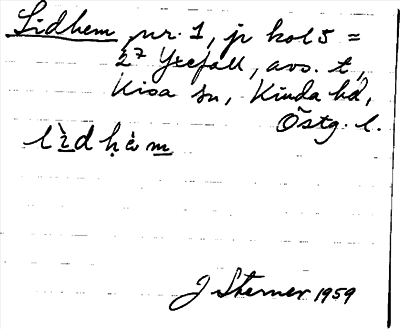 Lidhem nr. 1, jr kol 5 =
2⁷ Yxefall, avs. t,
Kisa sn, Kinda hd,
Östg. l.
J Sterner 1959